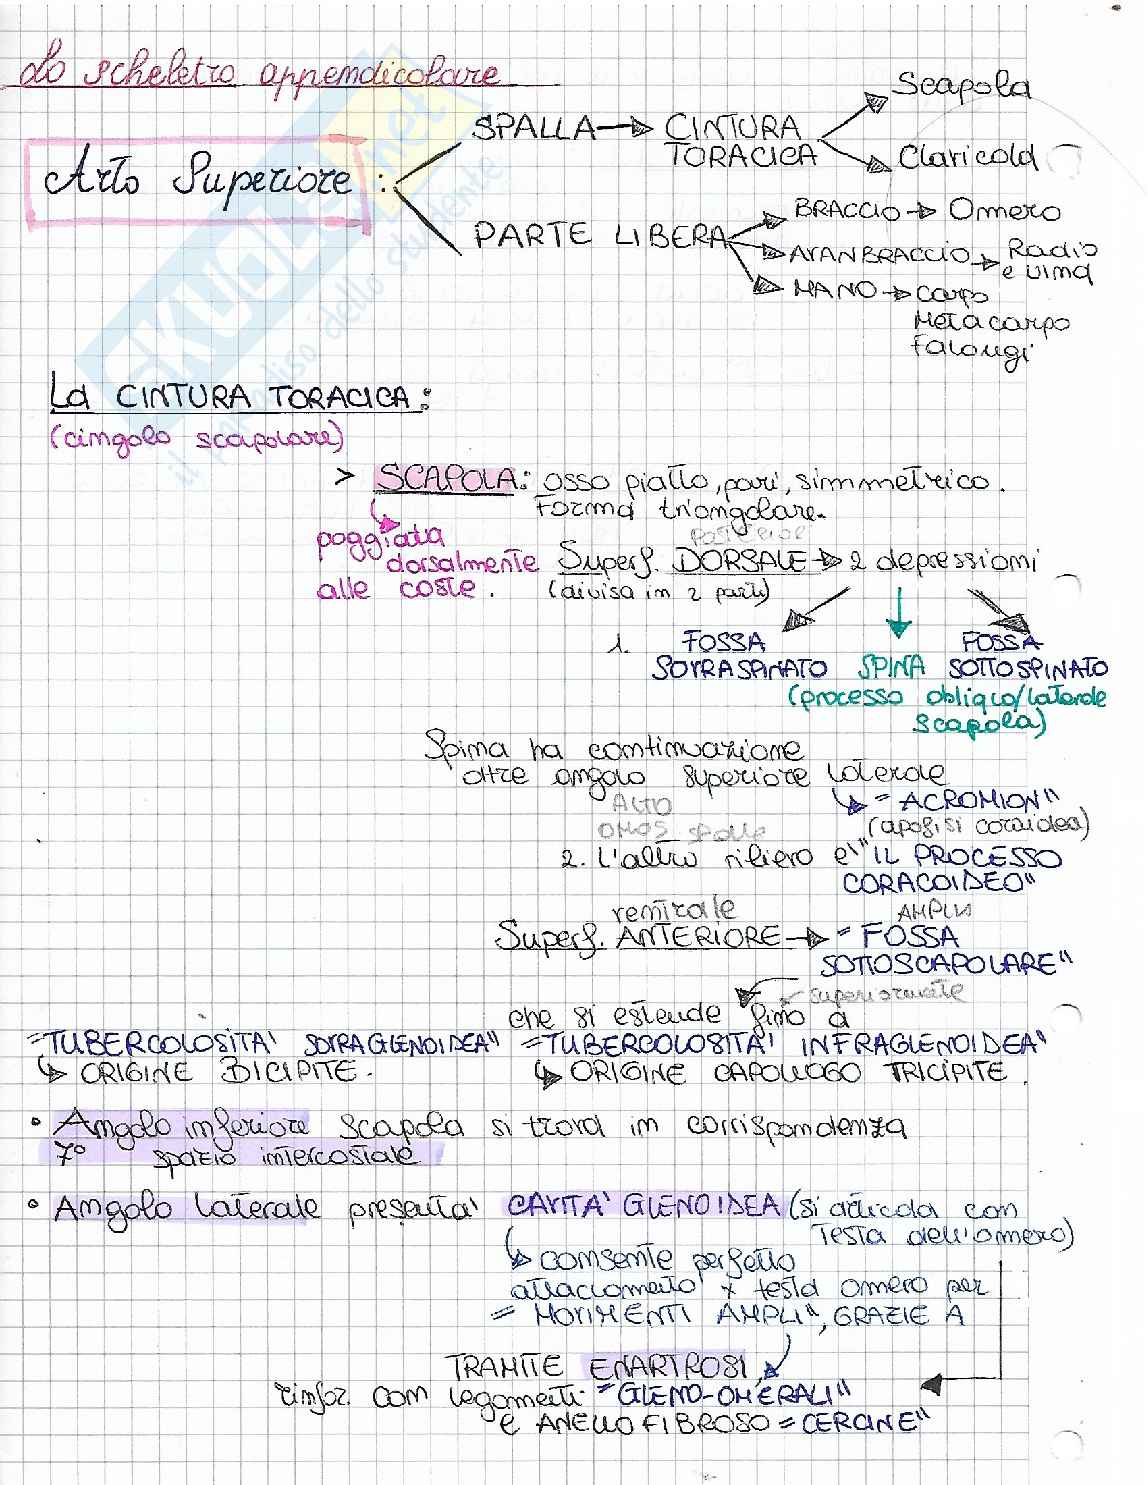 Lo scheletro appendicolare
Arto Superiore :
SPALLA → CINTURA TORACICA
Scapola
Clavicola
PARTE LIBERA
BRACCIO → Omero
AVANBRACCIO → Radio e ulna
MANO → carpo
Metacarpo
falangi
La CINTURA TORACICA :
(cingolo scapolare)
> SCAPOLA: osso piatto, pari, simmetrico.
Forma triangolare.
poggiata
dorsalmente
alle coste.
Posteriore
Superf. DORSALE → 2 depressioni
(divisa in 2 parti)
1. FOSSA SOVRASPINATO
SPINA
FOSSA SOTTOSPINATO
(processo obliquo/laterale
scapola)
Spina ha continuazione
oltre angolo superiore laterale
↳ "ACROMION"
(apofisi coracoidea)
ALTO
OMOS spalle
2. L'altro rilievo è "IL PROCESSO
CORACOIDEO"
ventrale
AMPIA
Superf. ANTERIORE → "FOSSA
SOTTOSCAPOLARE"
superiormente
che si estende fino a
"TUBERCOLOSITA' SOVRAGLENOIDEA" "TUBERCOLOSITA' INFRAGLENOIDEA"
↳ ORIGINE BICIPITE. ↳ ORIGINE CAPOLUOGO TRICIPITE.
• Angolo inferiore scapola si trova in corrispondenza
7° spazio intercostale
• Angolo laterale presenta CAVITA' GLENOIDEA (si articola con
testa dell'omero)
↳ consente perfetto
attaccamento x testa omero per
"MOVIMENTI AMPLI", GRAZIE A
TRAMITE ENARTROSI
rinfor. con legamenti "GLENO-OMERALI"
e ANELLO FIBROSO "CERCINE"
SKUOLA.net
il paradiso dello studente